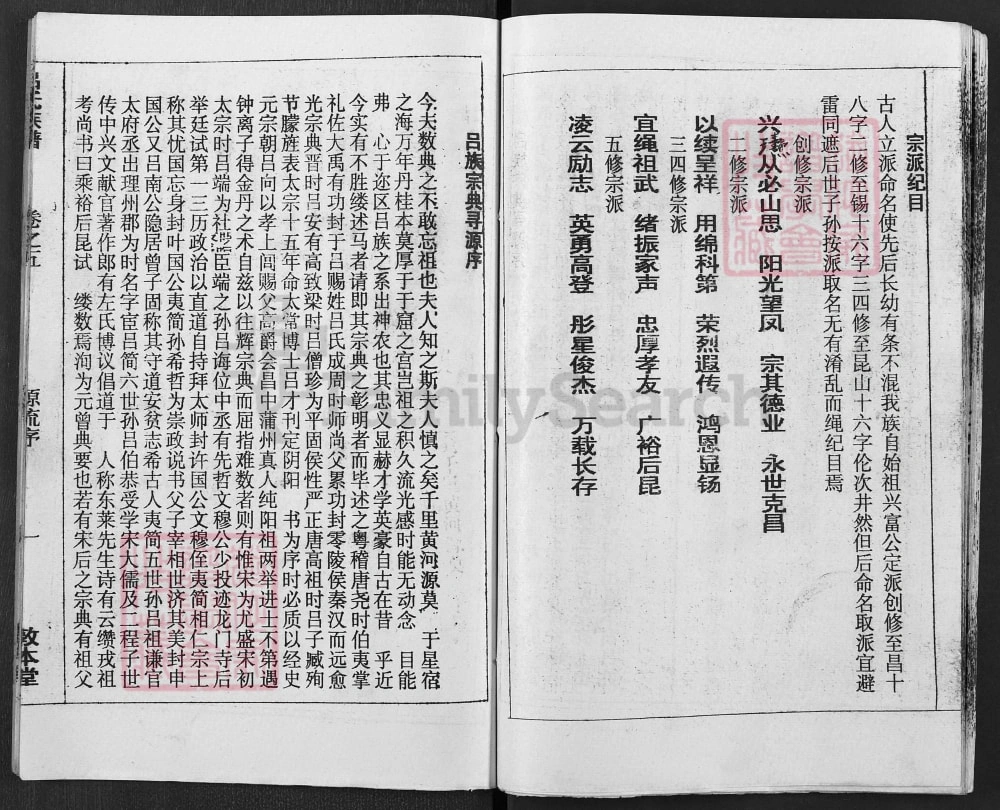 宗派纪目
古人立派命名使先后长幼有条不混我族自始祖兴富公定派创修至昌十
八字二修至锡十六字三四修至昆山十六字伦次井然但后命名取派宜避
雷同遮后世子孙按派取名无有淆乱而绳纪目焉
创修宗派
兴 从必山思 阳光望凤 宗其德业 永世克昌
二修宗派
以续呈祥 用绵科第 荣烈遐传 鸿恩显钖
三四修宗派
宜绳祖武 绪振家声 忠厚孝友 广裕后昆
五修宗派
凌云励志 英勇高登 彤星俊杰 万载长存
吕族宗典寻源序
今夫数典之不敢忘祖也夫人知之斯夫人慎之矣千里黄河源莫 于星宿
之海万年丹桂本莫厚于于窟之宫岂祖之积久流光感时能无动念 目能
弗 心于迩区吕族之系出神农也其忠义显赫才学英豪自古在昔 乎近
今实有不胜缕述马者请即其宗典之彰明者而毕述之粤稽唐尧时伯夷掌
礼佐大禹有功封于吕赐姓吕氏成周时师尚父累功封零陵侯秦汉而远愈
光宗典晋时吕安有高致梁时吕僧珍为平固侯性严正唐高祖时吕子臧殉
节朦旌表太宗十五年命太常博士吕才刊定阴阳 书为序时必质以经史
元宗朝吕向以孝上闻赐父高爵会昌中蒲州真人纯阳祖两举进士不第遇
钟离子得金丹之术自兹以往辉宗典而屈指难数者则有惟宋为尤盛宋初
太宗时吕端为社 臣端之孙吕诲位中丞有先哲文穆公少投迹龙门寺后
举廷试第一三历政治以直道自持拜太师封许国公文穆侄夷简相仁宗上
称其忧国忘身封叶国公夷简孙希哲为崇政说书父子宰相世济其美封申
国公又吕南公隐居曾子固称其守道安贫志希古人夷简五世孙吕祖谦官
太府丞出理州郡为时名字宦吕简六世孙吕伯恭受学宋大儒及二程子世
传中兴文献官著作郎有左氏博议倡道于 人称东莱先生诗有云缵戎祖
考尚书曰乘裕后昆试 缕数焉洵为元曾典要也若有宋后之宗典有祖父
吕氏族谱 卷之五 源流序 一 敦本堂
FamilySearch